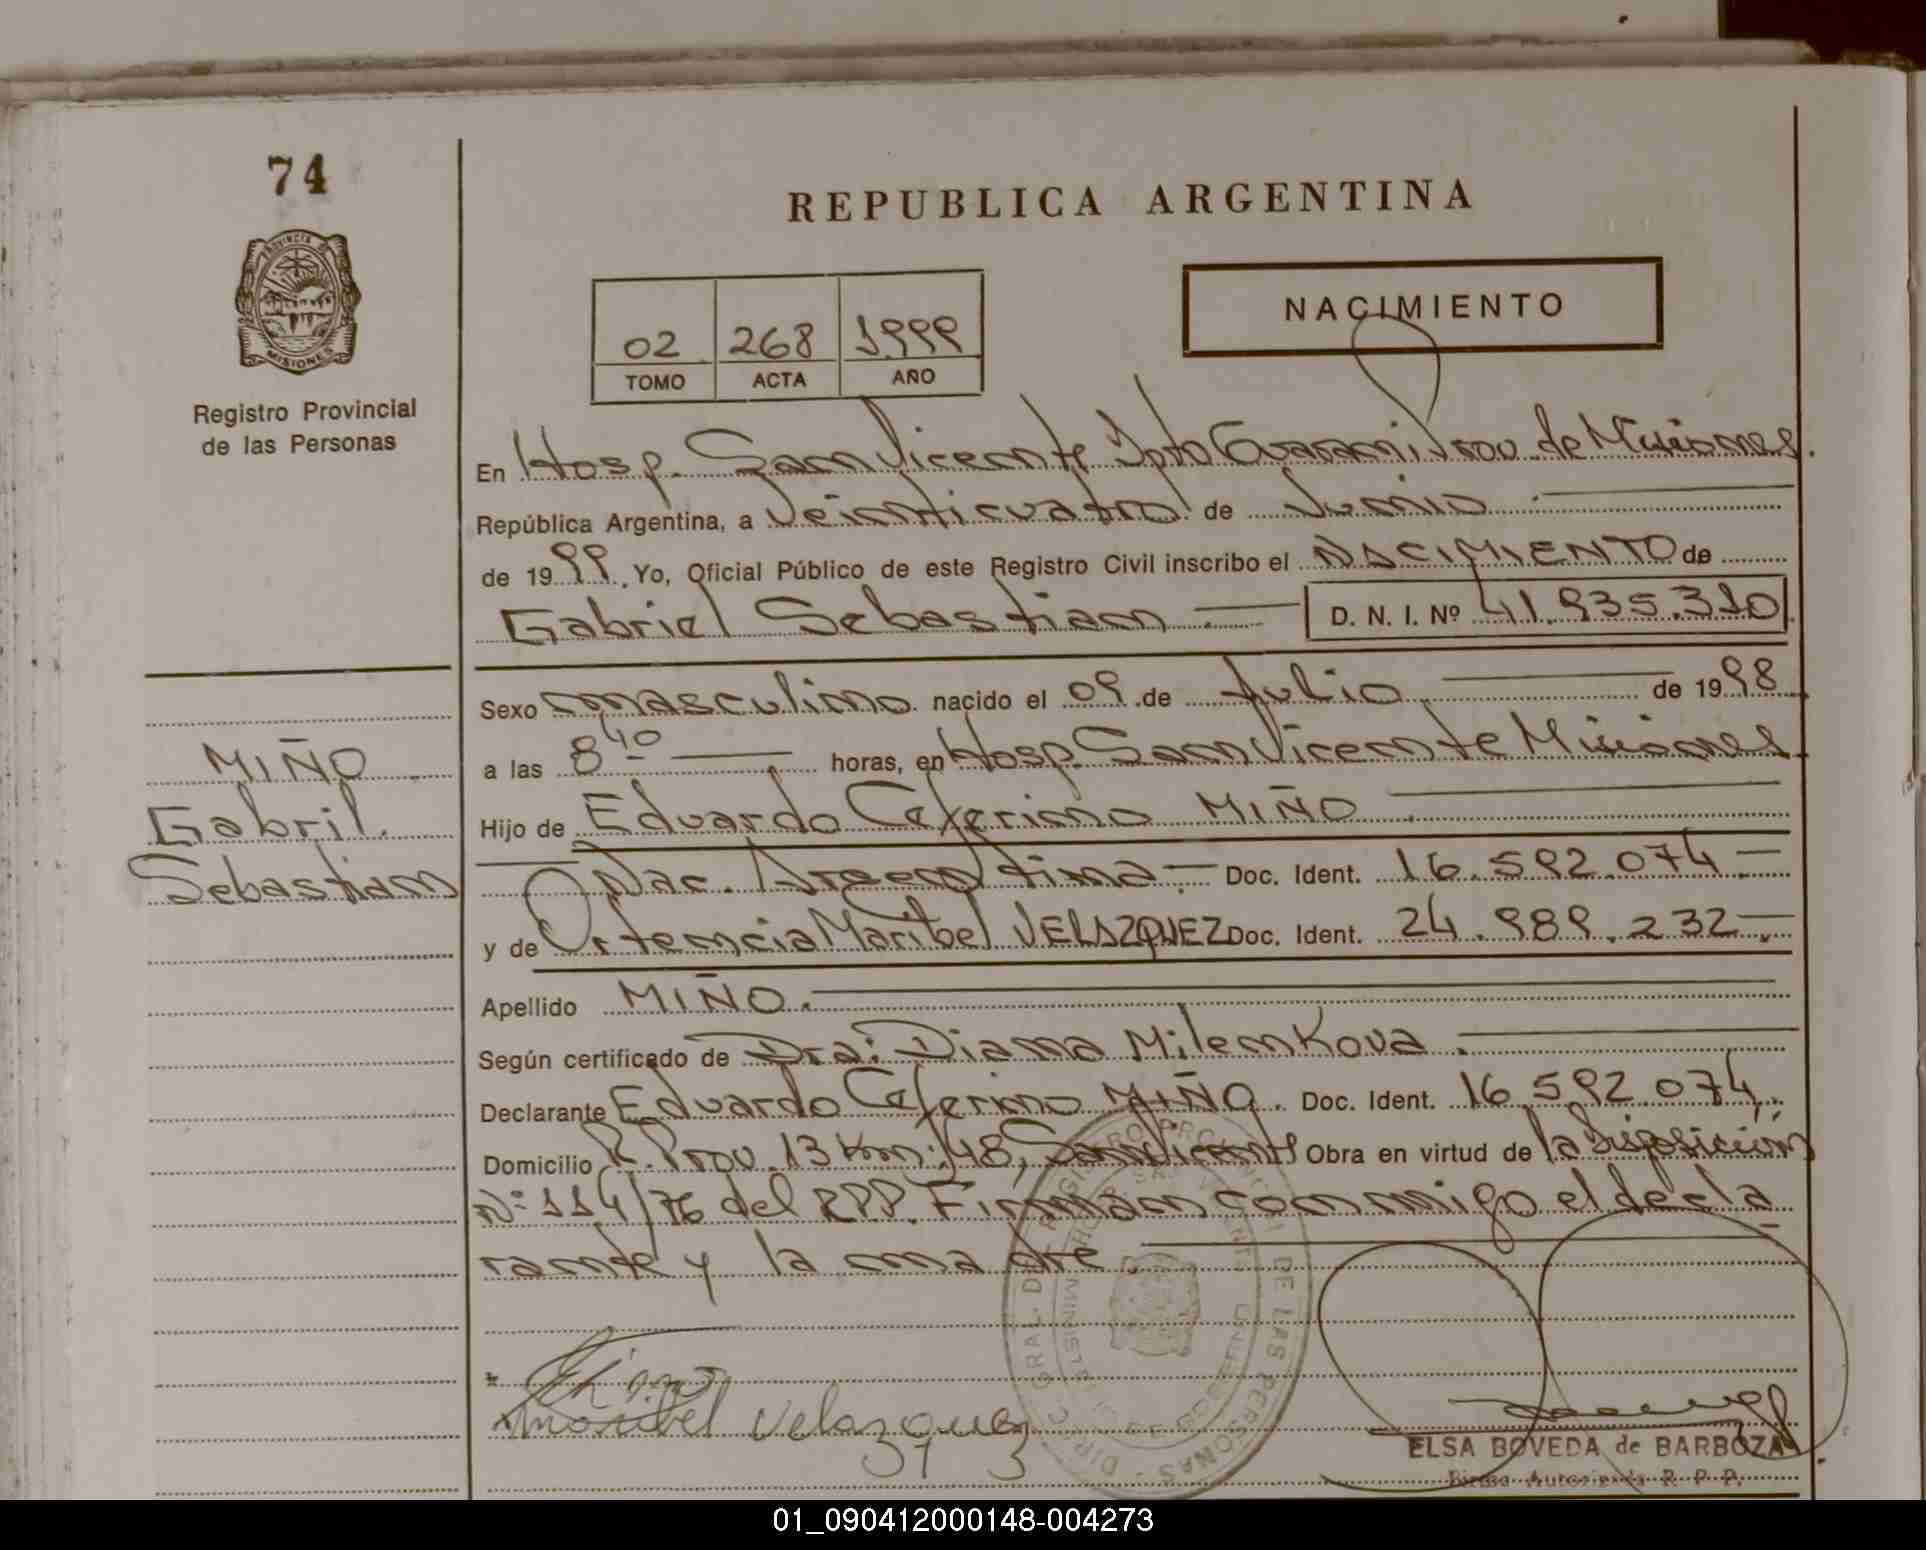 74
REPUBLICA ARGENTINA
PROVINCIA DE
MISIONES
Registro Provincial
de las Personas
02 268 1999
TOMO ACTA AÑO
NACIMIENTO
En Hosp. San Vicente Dpto Guarani Prov. de Misiones.
República Argentina, a Veinticuatro de Junio
de 1999. Yo, Oficial Público de este Registro Civil inscribo el NACIMIENTO de
Gabriel Sebastian. D. N. I. Nº 41.935.310
Sexo masculino nacido el 09 de Julio de 1998
a las 8 40 horas, en Hosp. San Vicente Misiones.
Hijo de Eduardo Ceferino MIÑO
Nac. Argentina. Doc. Ident. 16.592.074
y de Ortencia Maribel VELAZQUEZ Doc. Ident. 24.989.232
Apellido MIÑO.
Según certificado de Dra: Diana Milenkova.
Declarante Eduardo Ceferino MIÑO. Doc. Ident. 16.592.074
Domicilio R. Prov. 13 Km: 148, San Vicente Obra en virtud de la Disposición
Nº 114/76 del RPP. Firman conmigo el decla
rante y la madre.
MIÑO
Gabril.
Sebastian
Maribel Velazquez
DIP. GRAL. DEL REGISTRO PROVINCIAL DE LAS PERSONAS
MINISTERIO DE GOBIERNO
ELSA BOVEDA de BARBOZA
Firma Autorizada R. P. P.
01_090412000148-004273